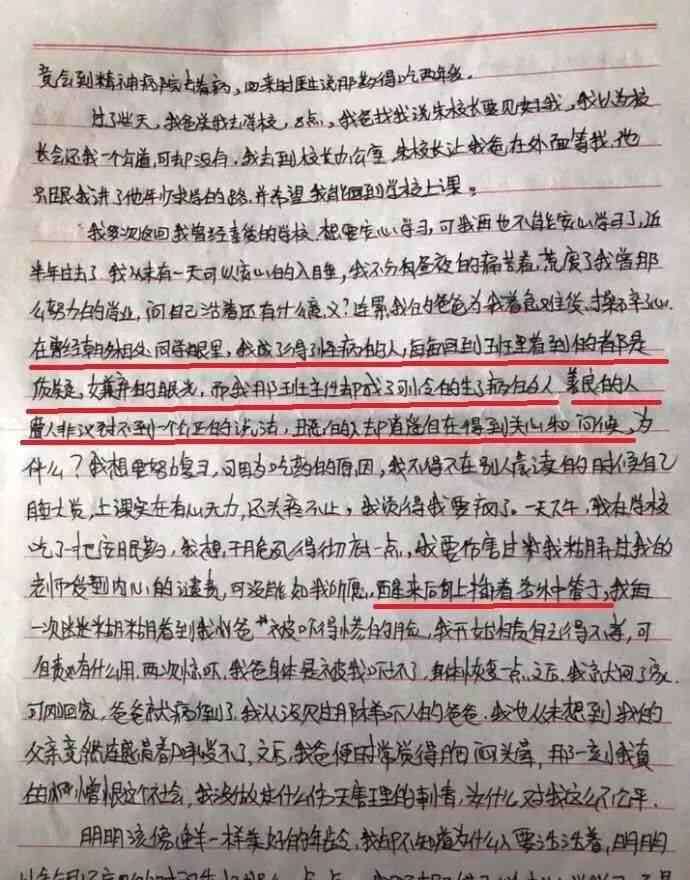 竟会到精神病院去看病，回来时医生说那药得吃两年。
过了些天，我爸送我去学校，8点，我爸找我说朱校长要见我，我以为校
长会还我一个公道，可却没有，我去到校长办公室，朱校长让我爸在外面等我，他
只跟我讲了他年少求学的路，并希望我能回到学校上课。
我多次返回我曾经喜爱的学校，想要安心学习，可我再也不能安心学习了，近
半年过去了，我从未有一天可以安心的入睡，我不分白昼夜的痛苦着，荒废了我曾那
么努力的学业，问自己活着还有什么意义？连累我的爸爸为我着急难
在曾经朝夕相处同学眼里，我成了得了怪病的人，每每回到班里看到的都是
质疑，嫌弃的眼光，而我那班主任却成了可怜的生了病的人 善良的人
遭人非议讨不到一个公正的说法，丑陋的人却逍遥自在得到关心和问候，为
什么？我想要努力复习，可因为吃药的原因，我不得不在别人晨读的时候自己
睡大觉，上课实在有心无力，还头疼不止，我觉得我要疯了。一天下午，我在学校
吃了一把安眠药，我想，干脆死得彻底一点，我要伤害过我玷污过我的
老师受到内心的谴责，可没能如我所愿，醒来后身上插着多条中管子，我再
一次迷迷糊糊看到我爸爸被吓得惨白的脸，我开始自责自己得不孝，可
自责也有什么用，两次惊吓，我爸身体是被我吓坏了，身体恢复一点之后，我就又回了家，
可刚回家，爸爸就病倒了，我从没见过那样吓人的爸爸，我也从未想到我的
父亲竟然连 不了，之后，我爸便时常觉得胸闷头晕，那一刻我真
的 憎恨这个社会，我没做过什么伤天害理的 事，为什么对我这么不公平，
明明该像鲜 一样美好的年龄，我却不知道为什么人要活活着，明明